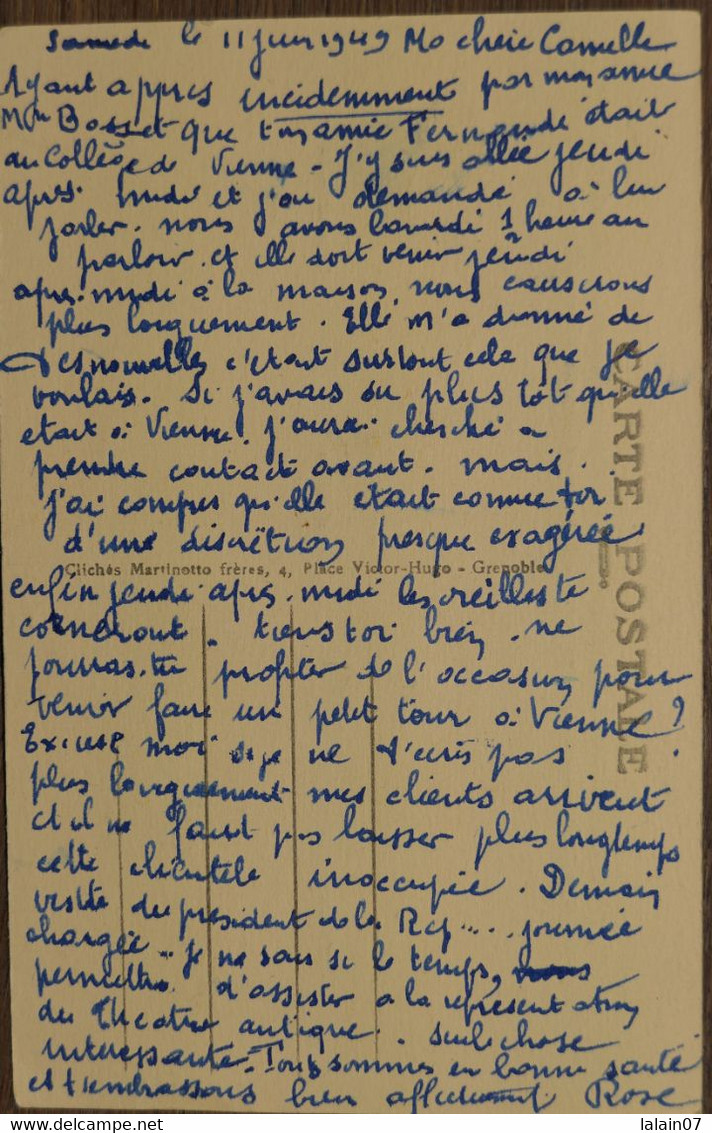 Samedi le 11 juin 1949 Ma chère Camille
Ayant appris incidemment par mon amie
Mme Bosset que ton amie Fernande était
au Collège de Vienne - J'y suis allée jeudi
après-midi et j'ai demandé à lui
parler. nous avons bavardé 1 heure au
parloir. et elle doit venir jeudi
après-midi à la maison, nous causerons
plus longuement. Elle m'a donné de
tes nouvelles c'était surtout cela que je
voulais. Si j'avais su plus tôt qu'elle
était à Vienne, j'aurai cherché à
prendre contact avant. mais.
j'ai compris qu'elle était comme toi
d'une discrètion presque exagérée
Clichés Martinotto frères, 4, Place Victor-Hugo - Grenoble
enfin jeudi après-midi les oreilles te
corneront. tiens toi bien. ne
pourras-tu profiter de l'occasion pour
venir faire un petit tour à Vienne ?
Excuse moi si je ne t'écris pas
plus longuement mes clients arrivent
et il ne faut pas laisser plus longtemps
cette clientèle inoccupée. Demain
visite du président de la Rép.... journée
chargée... Je ne sais si le temps,
permettra d'assister à la représentation
du Théatre antique. seule chose
intéressante. Tous sommes en bonne santé
et t'embrassons bien affectueusement Rose
CARTE POSTALE
lalain07